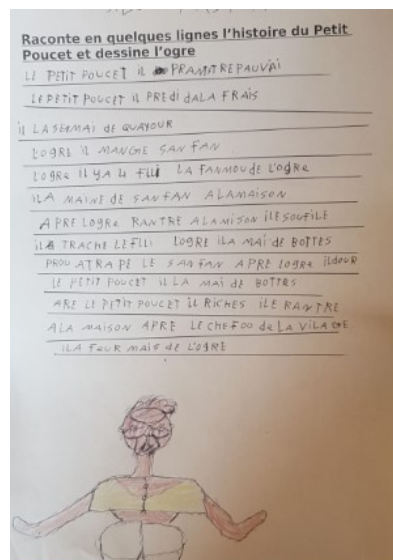 Raconte en quelques lignes l'histoire du Petit
Poucet et dessine l'ogre
LE PETIT POUCET IL PRANTTREPAUVAI
LE PETIT POUCET IL PREDI DALA FRAIS
iL LASEIMAI DE QUAYOUR
LOGRE IL MANGE SAN FAN
LOGRe IL YA 4 FLLI LA FANMOU DE L'OGRe
iLA MAINE DE SAN FAN ALAMAISON
APRE LOGRe RANTRE ALAMISON ILE SOUFILE
iLA TRACHE LEFLLI LOGRE ILA MAI DE BOTTES
PROU ATRAPE LE SAN FAN APRE LOGRe ILDOUR
LE PETIT POUCET IL LA MAI DE BOTTES
ARE LE PETIT POUCET IL RICHES ILE RANTRE
ALA MAISON APRE LE CHEFOO de LA VILAGE
ILA FOUR MAIS DE L'OGRE